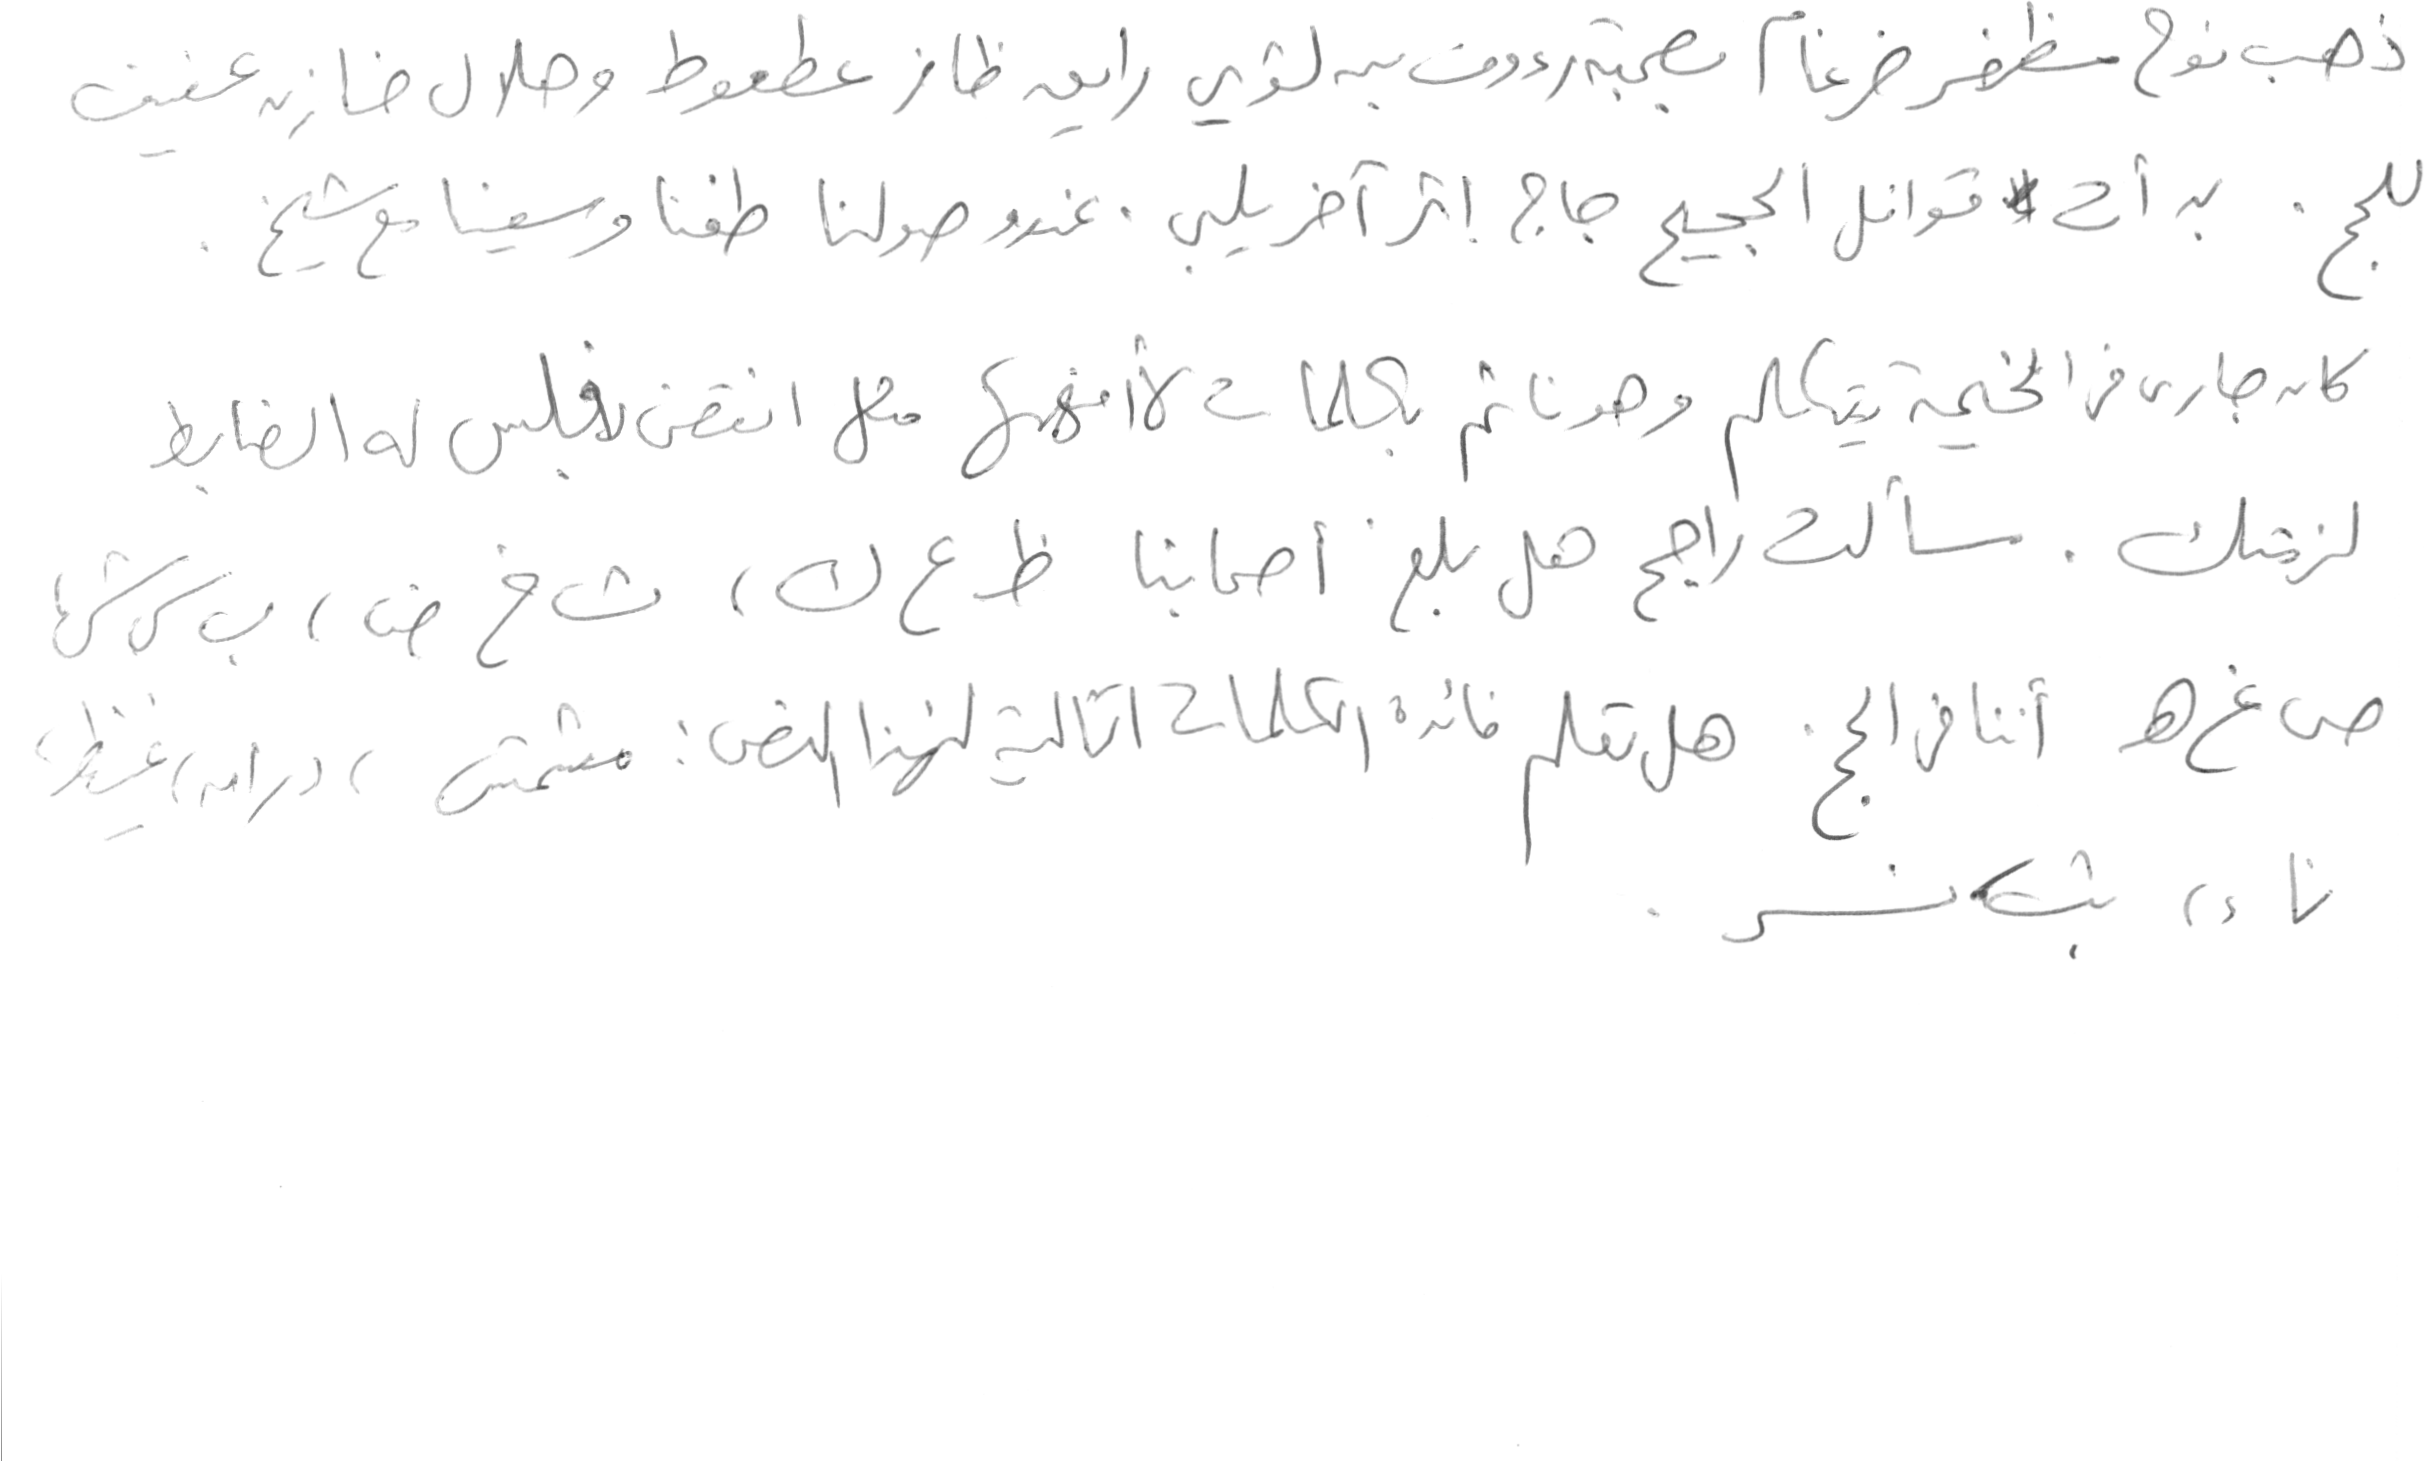 ذهب نوح مظفر ضرغام بصحبة رءوف بن لؤي رايق ظافر عطعوط وهلال خازن عفيف
للحج. بدأت قوافل الحجيج حاج إثر آخر يلبي. عند وصولنا طفنا وسعينا مع شيخ.
كان جاري في الخيمة يتكلم وهو نائم بكلمات لا أفهمها مثل انتقض لا فليس له الضابط
لزمتك. سألت راجح هل بلغ أصحابنا ظ ع ك، ث خ ض، ب س ش
ص غ ه أثنا في الحج. هل تعلم فائدة الكلمات التالية لهذا النص: مشمش، دراس، غليظ
ناء، بث نسر.